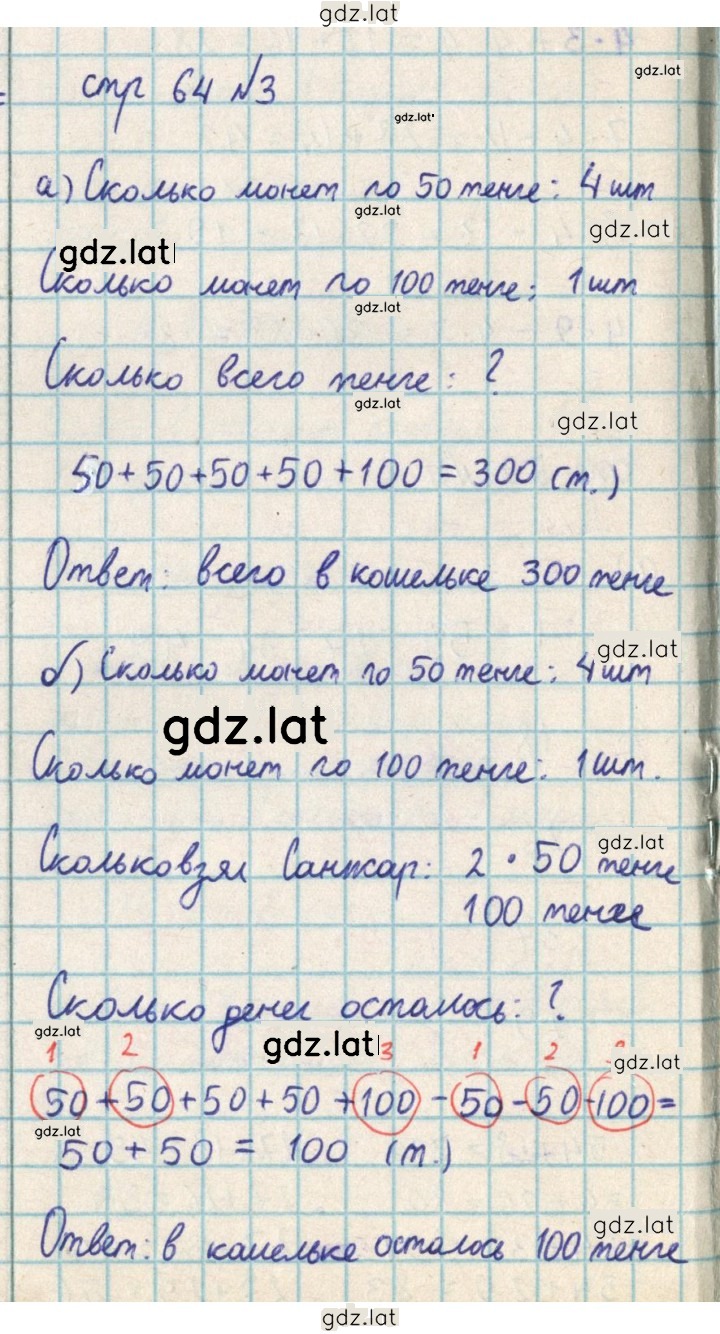 gdz.lat
стр 64 №3
gdz.lat
gdz.lat
а) Сколько монет по 50 тенге: 4 шт
gdz.lat
gdz.lat
gdz.lat
Сколько монет по 100 тенге: 1 шт
gdz.lat
Сколько всего тенге: ?
gdz.lat
gdz.lat
50+50+50+50+100=300 (т.)
Ответ: всего в кошельке 300 тенге
gdz.lat
б) Сколько монет по 50 тенге: 4 шт
gdz.lat
Сколько монет по 100 тенге: 1 шт.
gdz.lat
Сколько взял Санжар: 2 · 50 тенге
100 тенге
Сколько денег осталось: ?
gdz.lat
gdz.lat
gdz.lat
1 2 3 1 2
50+50+50+50+100-50-50-100=
gdz.lat
50+50 = 100 (т.)
gdz.lat
Ответ: в кошельке осталось 100 тенге
gdz.lat